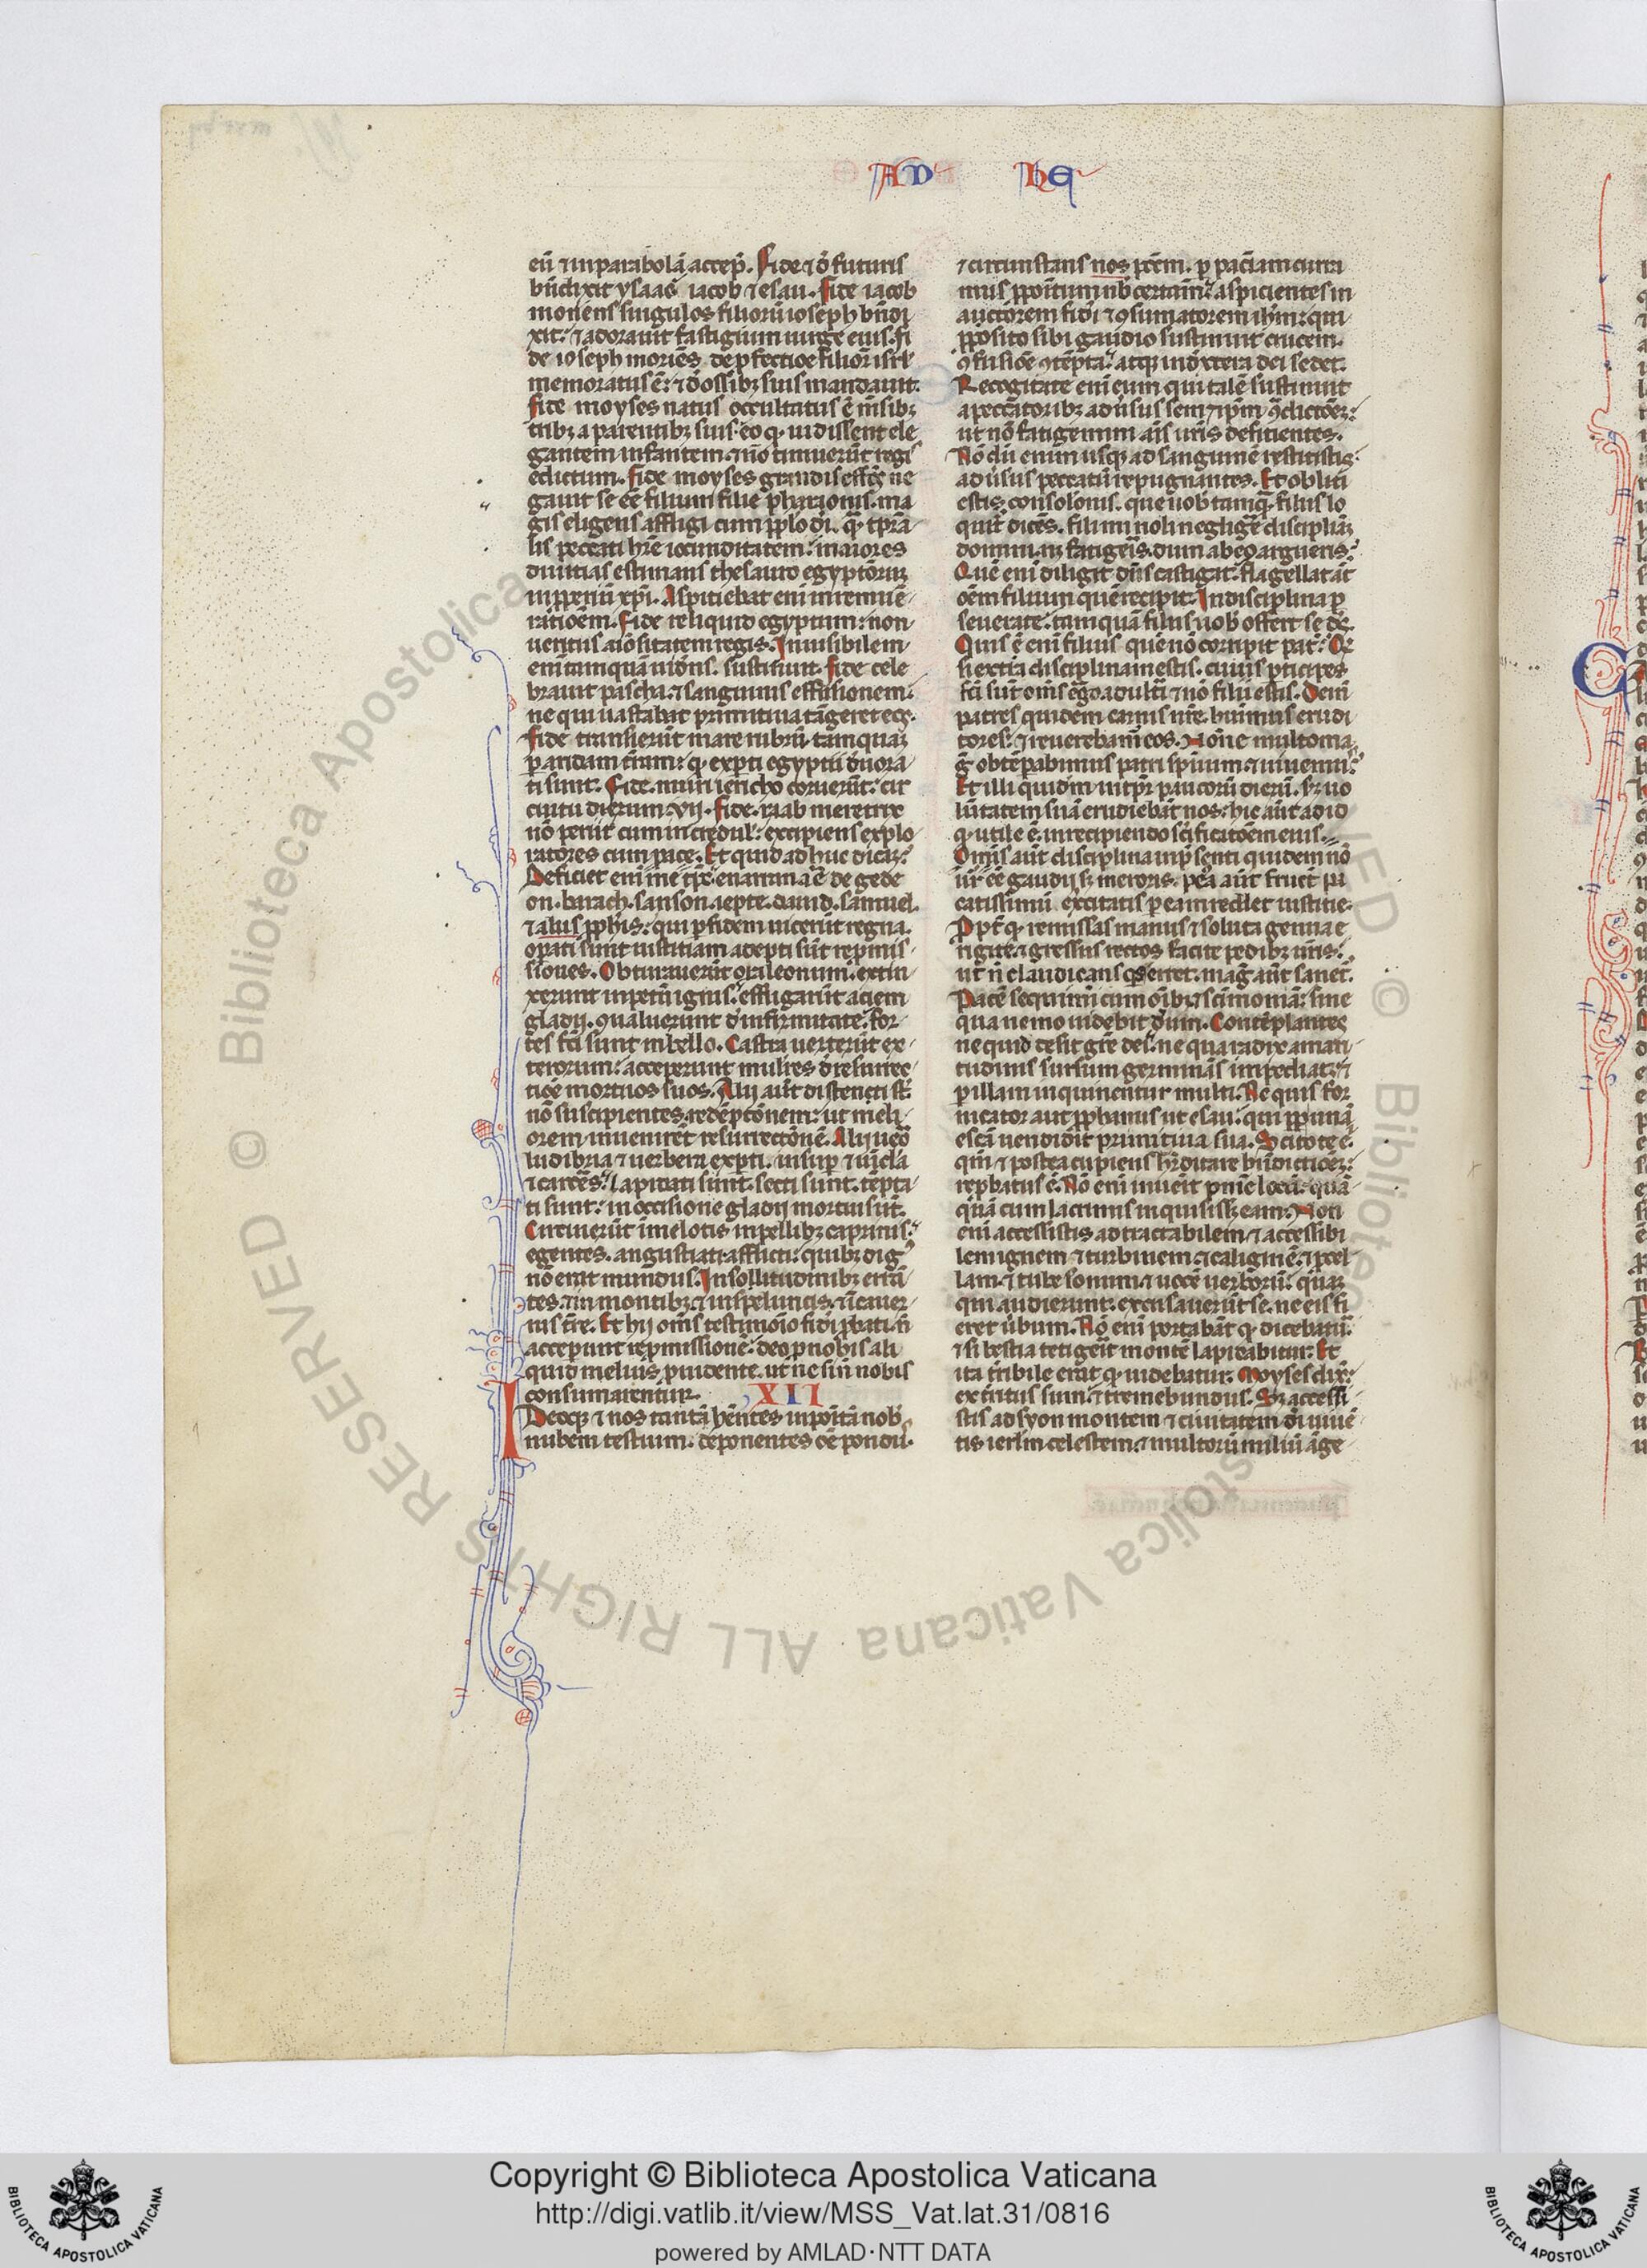 AD HE
eū ⁊ in parabolā accep̄. Fide ⁊ d̄ futuris
bn̄dixit ysaac iacob ⁊ esau. Fide iacob
moriens singulos filiorū ioseph bn̄di
xit: ⁊ adorauit fastigium uirge eius. Fi
de ioseph moriēs de ꝑfectiōe filioꝝ isrl̄
memoratus ē: ⁊ d̄ ossibꝫ suis mandauit.
Fide moyses natus occultatus ē m̄sibꝫ
tribꝫ a parentibꝫ suis. eo ꝙ uidissent ele
gantem infantem. ⁊ nō timuerūt regis
edictum. Fide moyses grandis effc̄s ne
gauit se eē filium filie pharaonis. ma
gis eligens affligi cum pp̄lo dī. qͣ̄ tp̄ra
lis peccati hr̄e iocunditatem: maiores
diuitias estimans thesauro egyptiorum
inpꝑiū xp̄i. Aspiciebat enī in remune
ratiōem. Fide reliquid egyptum: non
ueritus aīositatem regis. Inuisibilem
enī tanquā uidēns. sustinuit. Fide cele
brauit pascha. ⁊ sanguinis effusionem:
ne qui uastabat primitiua tāgeret eos.
Fide transierūt mare rubrū. tamquaꝫ
ꝑ aridam terram: ꝙ exꝑti egyptii d̄uora
ti sunt. Fide. muri iericho coruerūt. cir
cuitu dierum .vii. Fide. raab meretrix
nō periit cum incredul᷒: excipiens explo
ratores cum pace. Et quid adhuc dicā?
Deficiet enī me tp̄s enarrantē de gede
on. barach. sanson. iepte. dauid. samuel.
⁊ aliis ꝓphis: qui ꝑ fidem uicerūt regna.
oꝑati sunt iustitiam adepti sūt repmis
siones. Obturauerūt ora leonum. extin
xerunt inpetū ignis: effugarūt aciem
gladij. ꝯualuerunt d̄ infirmitate. for
tes fc̄i sunt in bello. Castra uerterūt ex
terorum: acceperunt mulieres d̄ resurrec
tiōe mortuos suos. Alij aūt distencti sūt
nō suscipientes redēptōnem: ut meli
orem inuenirēt resurrectōnē. Alij ueō
ludibria ⁊ uerbera exꝑti. insuꝑ ⁊ uīcla
⁊ carcēs: lapidati sunt. secti sunt. tēpta
ti sunt: in occisione gladij mortui sūt.
Circuierūt in melotis in pellibꝫ caprinis:
egentes. angustiati. afflicti: quibꝫ dig᷒
nō erat mundus. In sollitudinibꝫ errā
tes. ⁊ in montibꝫ ⁊ in speluncis. ⁊ ī cauer
nis tr̄e. Et hij om̄s testimōio fidī ꝓbati. n̄
acceperunt repmissionē: deo ꝓ nobis ali
quid melius prouidente. ut ne sin̄ nobis
consumarentur. XII
IDeoqꝫ ⁊ nos tantā hēntes inpoitā nob᷒
nubem testium. deponentes oē pondū.
⁊ circunstans nos pctm̄. ꝑ pacīam curra
mus ꝓpoītum nb̄ certam̄: aspicientes in
auctorem fidī ⁊ ꝯsumatorem ih̄m: qui
ꝓposito sibi gaudio sustinuit crucem.
ꝯfusiōe ꝯtēpta: atqꝫ in dextera dei sedet.
Recogitate enī eum qui talē sustinuit
a peccatoribꝫ aduersus semetip̄m ꝯdictōeꝫ:
ut nō fatigemini aīs ur̄is deficientes.
Nō dū enim usqꝫ ad sanguinē restitistis
aduersus peccatū repugnantes. Et obliti
estis consolōnis. que uob᷒ tamqͣ̄ filiis lo
quit᷑ dicēs. fili mi noli negligere disciplīaꝫ
domini. nꝫ fatigeris dum ab eo argueris:
Quē enī diligit dn̄s castigat: flagellat aūt
oēm filium quē recipit. In disciplina ꝑ
seuerate: tamquā filiis uob᷒ offert se ds̄.
Quis ē enī filius quē nō corripit pater: Qd᷒
si extra disciplinam estis. cuius ꝑticipes
fc̄i sūt om̄s ergo adulti ⁊ nō filii estis. Deīn
patres quidem carnis nr̄e. habuimus erudi
tores: ⁊ reuerebam̄ eos. Nōne multo ma
gͥ obtēꝑabimus patri spūum. ⁊ uiuem᷒:
Et illi quidem in tp̄r paucorū dierū. scd᷒ uo
luntatem suā erudiebāt nos: hic aūt ad id
ꝙ utile ē in recipiendo sc̄ificatōem eius.
Omīs aūt disciplina in p̄senti quidem nō
ur̄ eē gaudij sꝫ meroris. poā aūt fructū pa
catissimū excitatis ꝑ eam reddet iustitie.
Ppt᷑ ꝙ remissas manus ⁊ soluta genua e
rigite. ⁊ gressus rectos facite pedibꝫ ur̄is:
ut n̄ claudicans qͥs erret. magͥ aūt sanet᷑.
Pacē sequimī cum oībꝫ ⁊ sc̄imoniā: sine
qua nemo uidebit dm̄. Contēplantes
ne quid desit grē dei. ne qua radix amari
tudinis sursum germinās impediat. ⁊
ꝑ illam inquinentur multi. Ne quis for
nicator aut ꝓphanus ut esau: qui ꝓpt᷑ unā
escā uendidit primitiua sua. Scitote ē.
qm̄ ⁊ postea cupiens h̄reditare bn̄dictōeꝫ:
reꝓbatus ē. Nō enī inuēit pn̄ie locū: quā
quā cum lacrimis inquisisset eam. Non
enī accessistis ad tractabilem. ⁊ accessibi
lem ignem ⁊ turbinem. ⁊ caliginē. ⁊ ꝓcel
lam. ⁊ tube sonum. ⁊ uocē uerborū: quaꝫ
qui audierunt. excusauerūt se. ne eis fi
eret uerbum. Nō enī portabāt ꝙ dicebatur.
⁊ si bestia tetigerit montē lapidabitur. Et
ita tribile erat ꝙ uidebatur. Moyses dix:
exteritus sum. ⁊ tremebundus. Sꝫ accessi
stis ad syon montem ⁊ ciuitatem dī uiuē
tis ierl̄m celestem. ⁊ multorū miliū āge
© Biblioteca Apostolica Vaticana ALL RIGHTS RESERVED
Copyright © Biblioteca Apostolica Vaticana
http://digi.vatlib.it/view/MSS_Vat.lat.31/0816
powered by AMLAD·NTT DATA
BIBLIOTECA APOSTOLICA VATICANA
BIBLIOTECA APOSTOLICA VATICANA